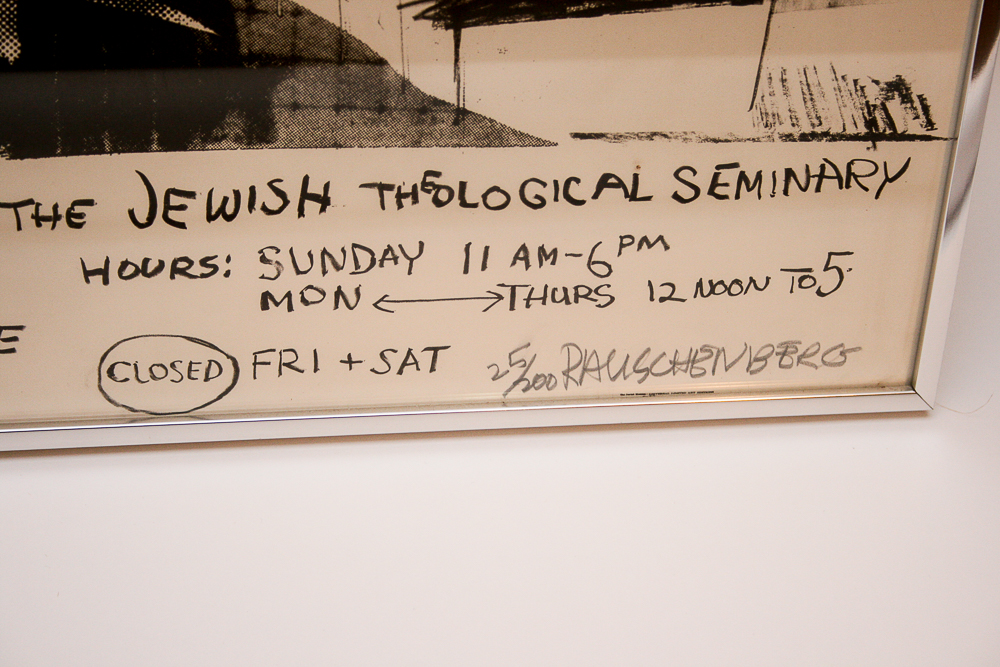 THE JEWISH THEOLOGICAL SEMINARY
HOURS: SUNDAY 11 AM-6 PM
MON ⟷ THURS 12 NOON TO 5
CLOSED FRI + SAT
25/200 RAUSCHENBERG